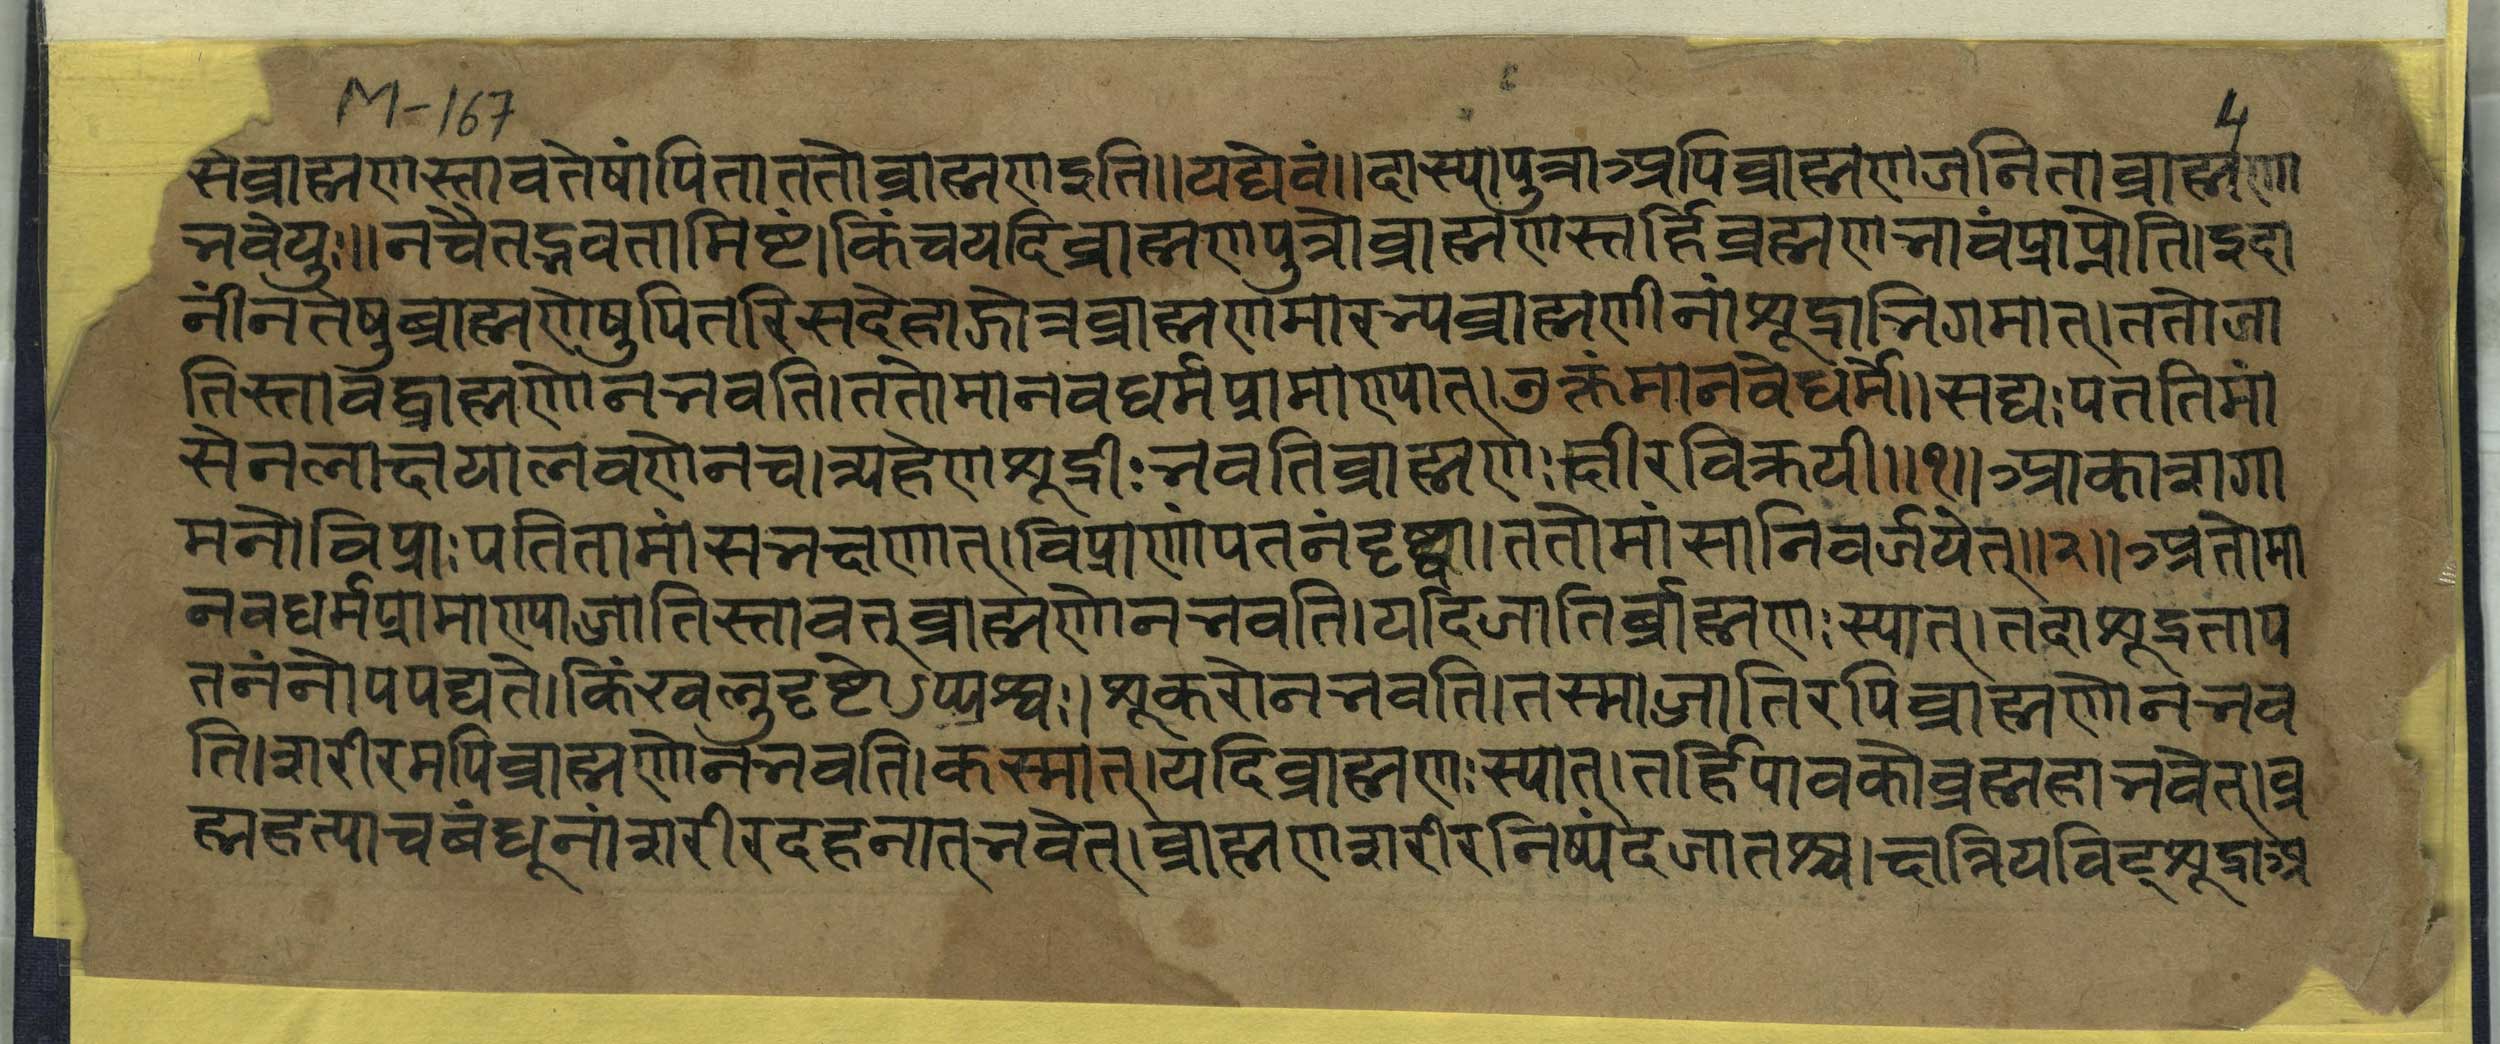 M-167
4
सेब्राह्मणस्तावतेषांपिताततोब्राह्मणइति॥यद्येवं॥दास्यापुत्राअपिब्राह्मणजनिताब्राह्मणा
भवेयुः॥नचैतद्भवतामिष्टं।किंचयदिब्राह्मणपुत्रोब्राह्मणस्तर्हिब्रह्मणभावंप्राप्नोति।इदा
नींनतेषुब्राह्मणेषुपितरिसदेहाज्गोत्रब्राह्मणमारभ्यब्राह्मणीनांशूद्राभिगमात्।ततोजा
तिस्तावद्ब्राह्मणोनभवति।ततोमानवधर्मप्रामाण्यात्।उक्तंमानवेधर्मे॥सद्यःपततिमां
सेनलाक्षयालवणेनच।त्र्यहेणशूद्रीःभवतिब्राह्मणःक्षीरविक्रयी॥१॥आकाशगा
मनोविप्राःपतितामांसभक्षणात्।विप्राणांपतनंदृष्ट्वा।ततोमांसानिवर्जयेत्॥२॥अतोमा
नवधर्मप्रामाण्याज्जातिस्तावत्ब्राह्मणोनभवति।यदिजातिर्ब्राह्मणःस्यात्।तदाशूद्रताप
तनंनोपपद्यते।किंखलुदृष्टोऽप्यश्वः।शूकरोनभवति।तस्माज्जातिरपिब्राह्मणोनभव
ति।शरीरमपिब्राह्मणोनभवति।कस्मात्।यदिब्राह्मणःस्यात्।तर्हिपावकोब्रह्महाभवेत्।ब्र
ह्महत्याचबंधूनांशरीरदहनात्भवेत्।ब्राह्मणशरीरनिष्यंदजातश्च।क्षत्रियविट्शूद्राअ